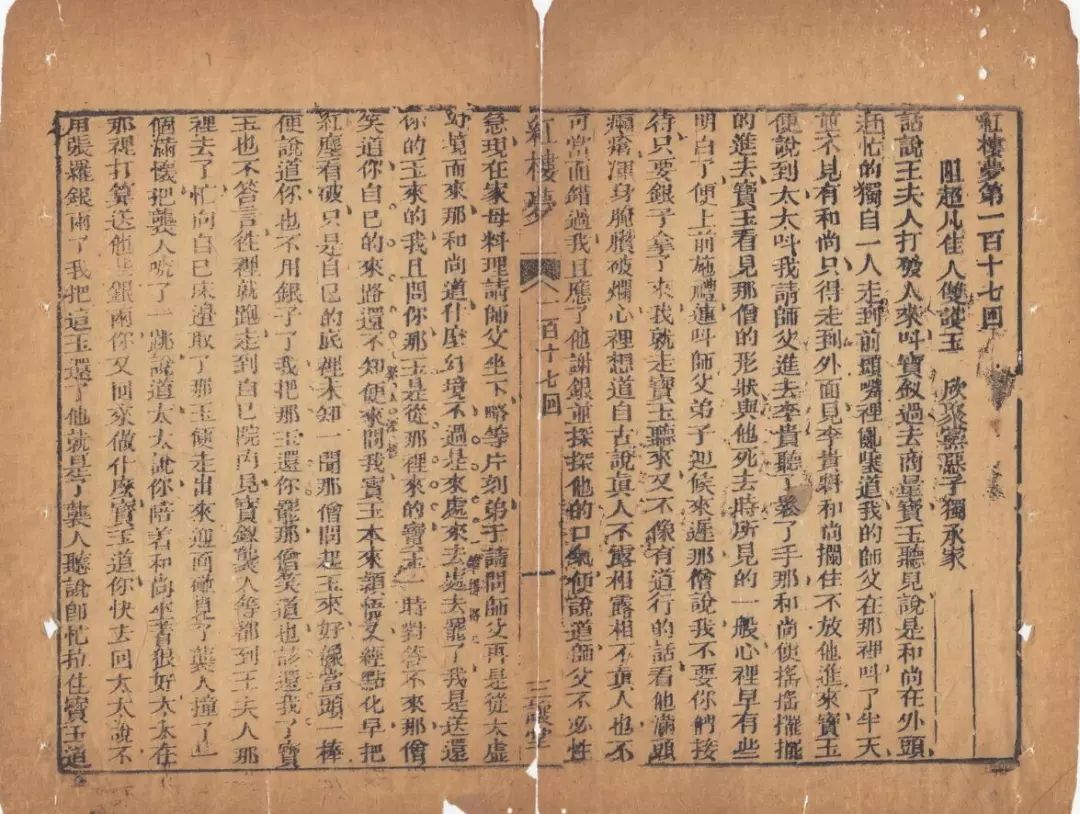 紅樓夢第一百十七回
阻超凡佳人雙護玉　欣聚黨惡子獨承家
話說王夫人打發人來叫寶釵過去商量寶玉聽見說是和尚在外頭
赶忙的獨自一人走到前頭嘴裡亂嚷道我的師父在那裡叫了半天
並不見有和尚只得走到外面見李貴將和尚攔住不放他進來寶玉
便說道太太叫我請師父進去李貴聽了鬆了手那和尚便搖搖擺擺
的進去寶玉看見那僧的形狀與他死去時所見的一般心裡早有些
明白了便上前施禮連叫師父弟子迎候來遲那僧說我不要你們接
待只要銀子拿了來我就走寶玉聽來又不像有道行的話看他滿頭
癩瘡渾身腌臢破爛心裡想道自古說真人不露相露相不真人也不
可當面錯過我且應了他謝銀並探探他的口氣便說道師父不必性
紅樓夢
一百十七回
一
三讓堂
急現在家母料理請師父坐下略等片刻弟子請問師父可是從太虛
幻境而來那和尚道什麼幻境不過是來處來去處去罷了我是送還
你的玉來的我且問你那玉是從那裡來的寶玉一時對答不來那僧
笑道你自已的來路還不知便來問我寶玉本來頴悟又經點化早把
紅塵看破只是自已的底裡未知一聞那僧問起玉來好像當頭一棒
便說道你也不用銀子了我把那玉還你罷那僧笑道也該還我了寶
玉也不答言徃裡就跑走到自已院內見寶釵襲人等都到王夫人那
裡去了忙向自已床邊取了那玉便走出來迎面碰見了襲人撞了一
個滿懷把襲人唬了一跳說道太太說你陪着和尚坐着狠好太太在
那裡打算送他些銀兩你又回來做什麼寶玉道你快去回太太說不
用張羅銀兩了我把這玉還了他就是了襲人聽說卽忙拉住寶玉道